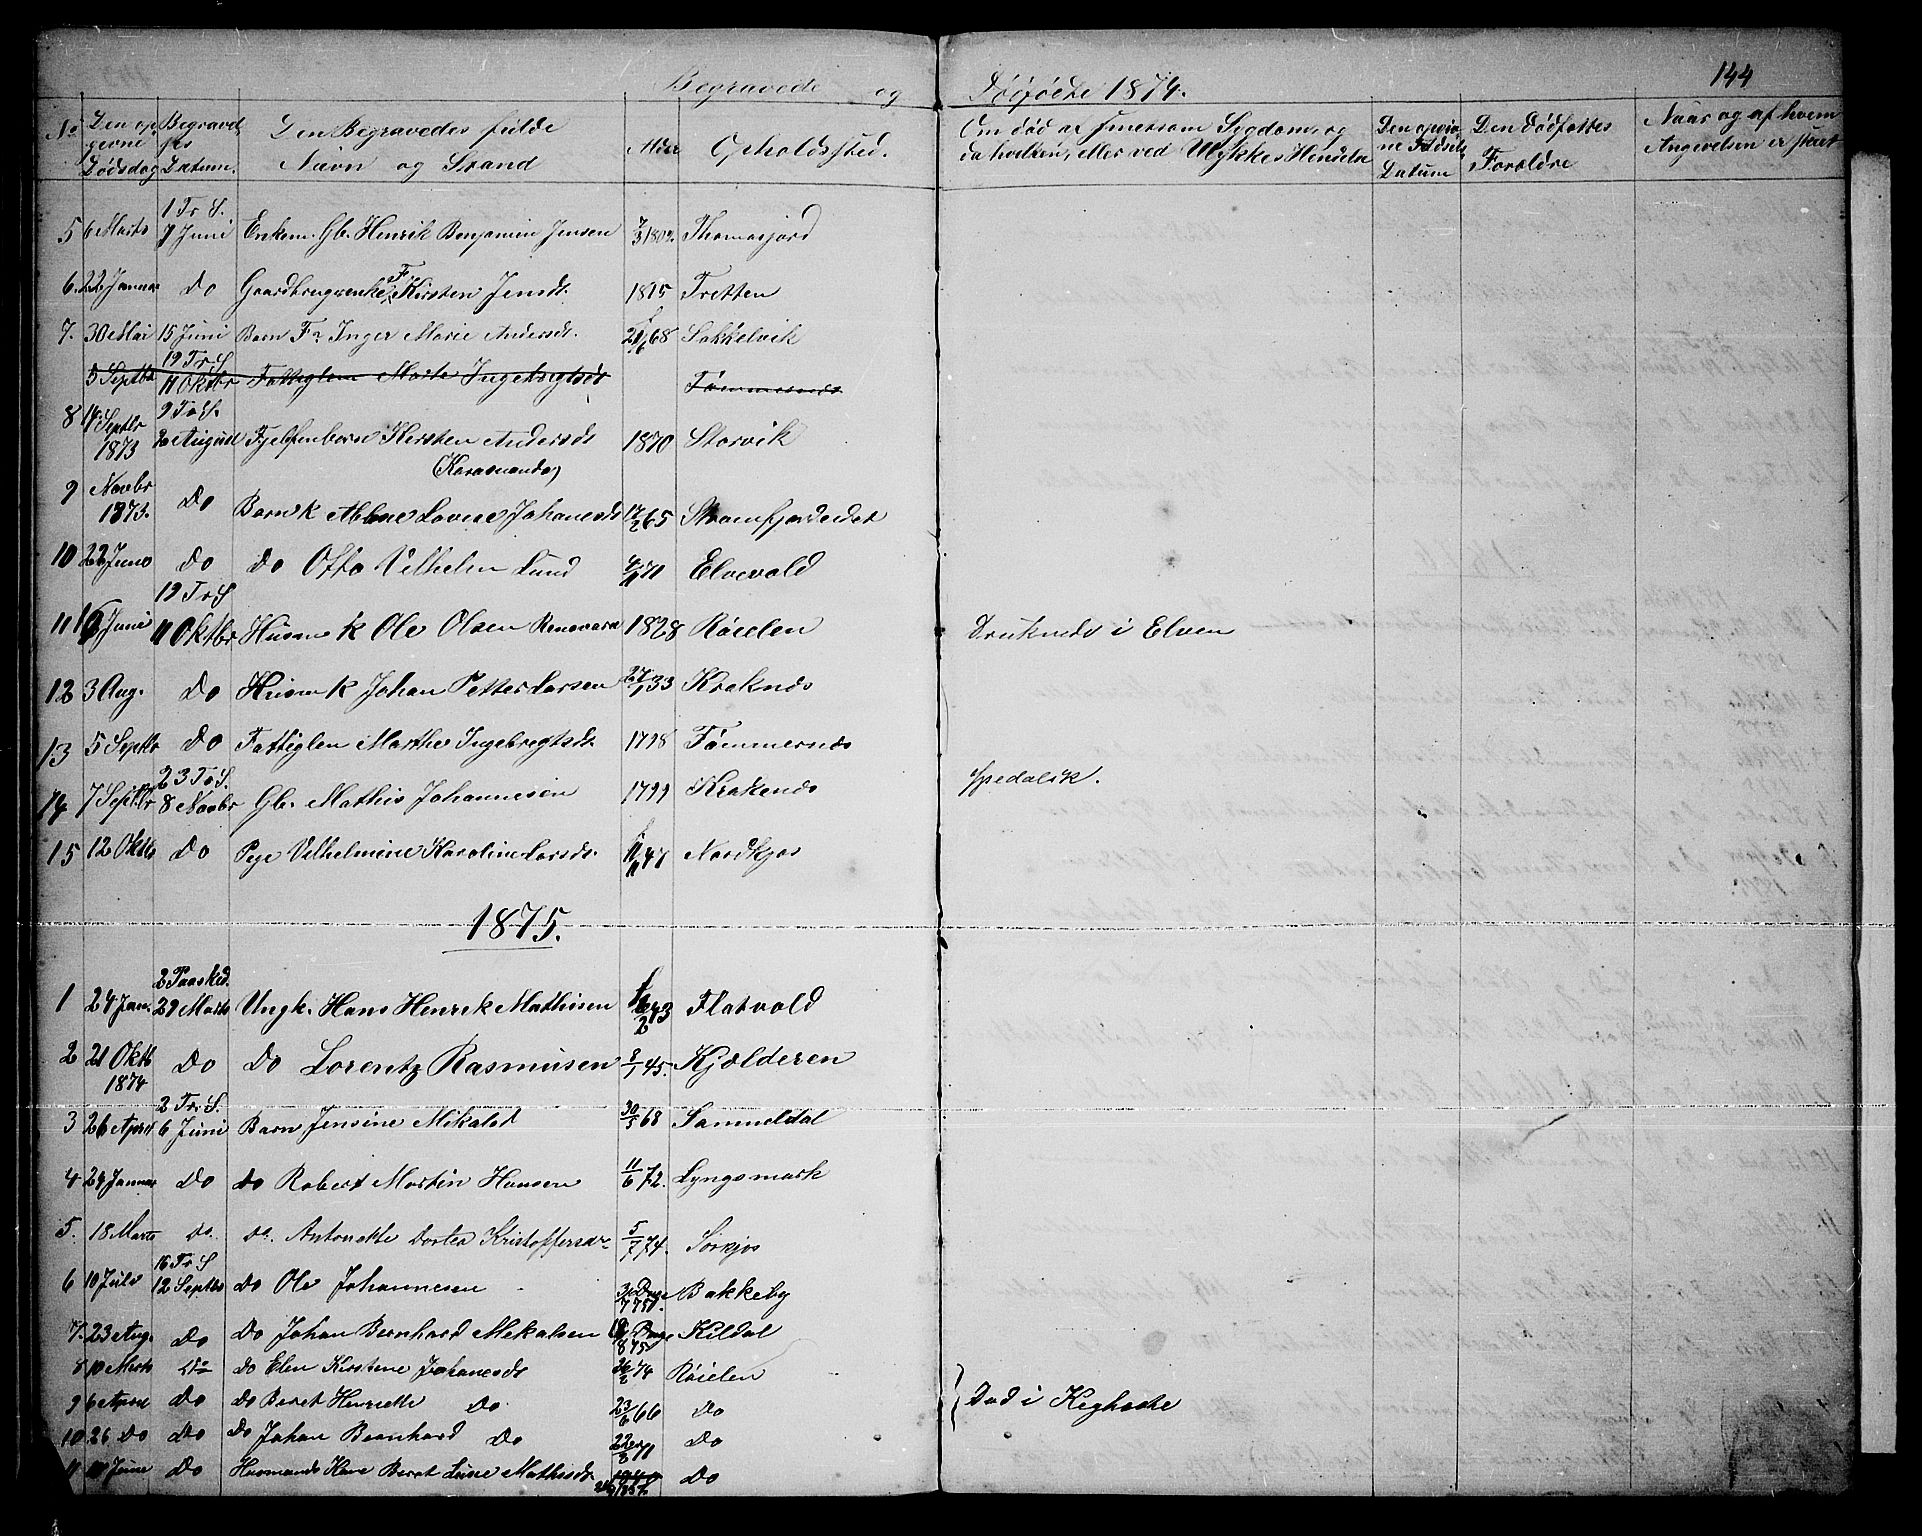 144
Begravede og Dødfødte 1874.
No Den opgivne Dødsdag Begravelses Datum. Den Begravedes fulde Navn og Stand Alder Opholdssted. Om død af smetsom Sygdom, og da hvilken, eller ved Ulykkes Hendelse Den opgivne Fødsels Datum Den Dødføttes Foreldre Naar og af hvem Angivelsen er skeet
1 Tr S.
5 6 Marts 7 Juni Enkem. Gb. Henrik Benjamin Jensen 7/3 1802. Thomasjord
6. 22 Januar Do Gaardbrugerenke F Kirsten Jensdt. 1815 Tretten
7. 30 Mai 15 Juni Barn Fr Inger Marie Andersdt. 68 Sakkelvik
19 Tr S
5 Septbr 11 Oktbr Fattiglem Marte Ingebrigtsdt Tømmernes
9 Tr S.
8 14 Septbr 1873 2 August Fjelfinbarn Kirsten Andersdt 1870 Storvik
(Karasuando)
9 Novbr 1873. Do Barn k Abbne Lovise Johanesdt 12/2 65 Strømfjordeidet
10 22 Juno Do Do Otto Vilhelm Lund 4/11 71 Elvevold
19 Tr S
11 16 Juni 11 Oktbr Husm k Ole Olsen Renovara 1828 Røielen Druknede i Elven
12 3 Aug. Do Husm k Johan Petter Larsen 27/1 33 Kraknes
13 5 Septbr Do Fattiglem Marthe Ingebregtsdt. 1798 Tømmernes
23 Tr S.
14 7 Septbr 8 Novbr Gb. Mathis Johannesen 1799 Krakenes Spedalsk.
15 12 Oktb Do Pige Vilhelmine Karoline Larsdt. 47 Nordkjos
1875.
2 Paasked.
1 24 Jan. 29 Marts Ungk. Hans Henrik Mathisen 43 Flatvold
2 21 Oktb 1874 Do Do Lorentz Rasmusen 8/1 45. Kjælderen
2 Tr. S.
3 26 April 6 Juni Barn Jensine Mikalsd 30/5 68 Sammeldal
4 24 Januar Do do Robert Martin Hansen 11/6 72. Lyngsmark
5. 18 Marts Do. Do. Antonette Dortea Kristoffersdr 5/7 74. Sørkjos
16 Tr S
6 10 Juli 12 Septbr do Ole Johannesen Dage Bakkeby
7. 23 Aug. Do Do Johan Bernhard Mekalsen Dage Kildal
8 10 Marts Do do Elen Kirstene Johanesdt 74 Røielen
9 6 April Do do Beret Henriette Do 23/6 66 Do
} Død i Keghoste
10 26 Do Do Do Johan Bernhard Do 71 Do
11 Juni Do Husmands Kone Beret Lene Mathisdt. 1840 1837. Do